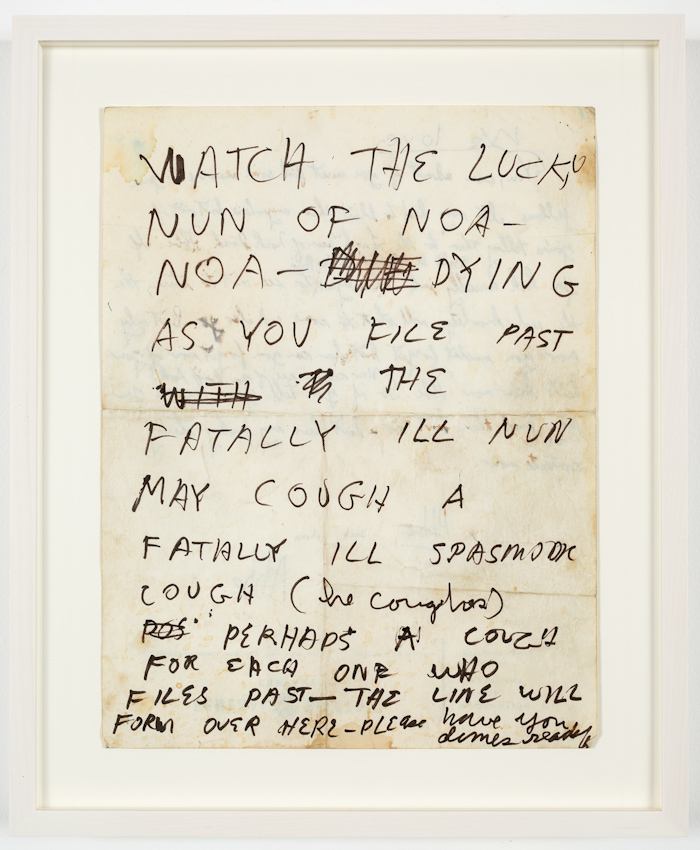 WATCH THE LUCKY
NUN OF NOA-
NOA- DYING
AS YOU FILE PAST
WITH THE
FATALLY ILL NUN
MAY COUGH A
FATALLY ILL SPASMODIC
COUGH (he coughs)
POS PERHAPS A COUGH
FOR EACH ONE WHO
FILES PAST—THE LINE WILL
FORM OVER HERE-PLEASE have you
dimes ready